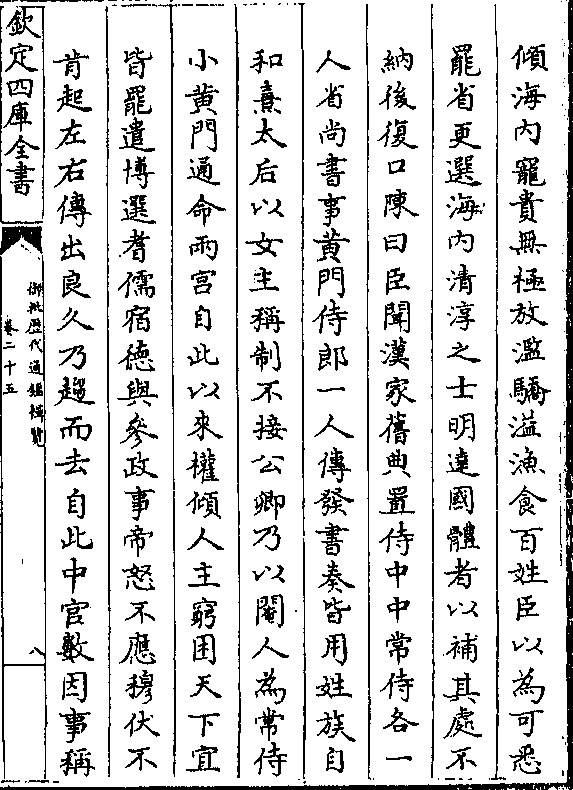 傾海内寵貴無極放濫驕溢漁食百姓臣以為可悉
罷省更選海内清淳之士明達國體者以補其處不
納後復口陳曰臣聞漢家舊典置侍中中常侍各一
人省尚書事黄門侍郎一人傳發書奏皆用姓族自
和熹太后以女主稱制不接公卿乃以閹人為常侍
小黄門通命兩宫自此以來權傾人主窮困天下宜
皆罷遣博選耆儒宿德與參政事帝怒不應穆伏不
肯起左右傳出良久乃趨而去自此中官數因事稱
欽定四庫全書
御批歴代通鑑輯覽
卷二十五
八